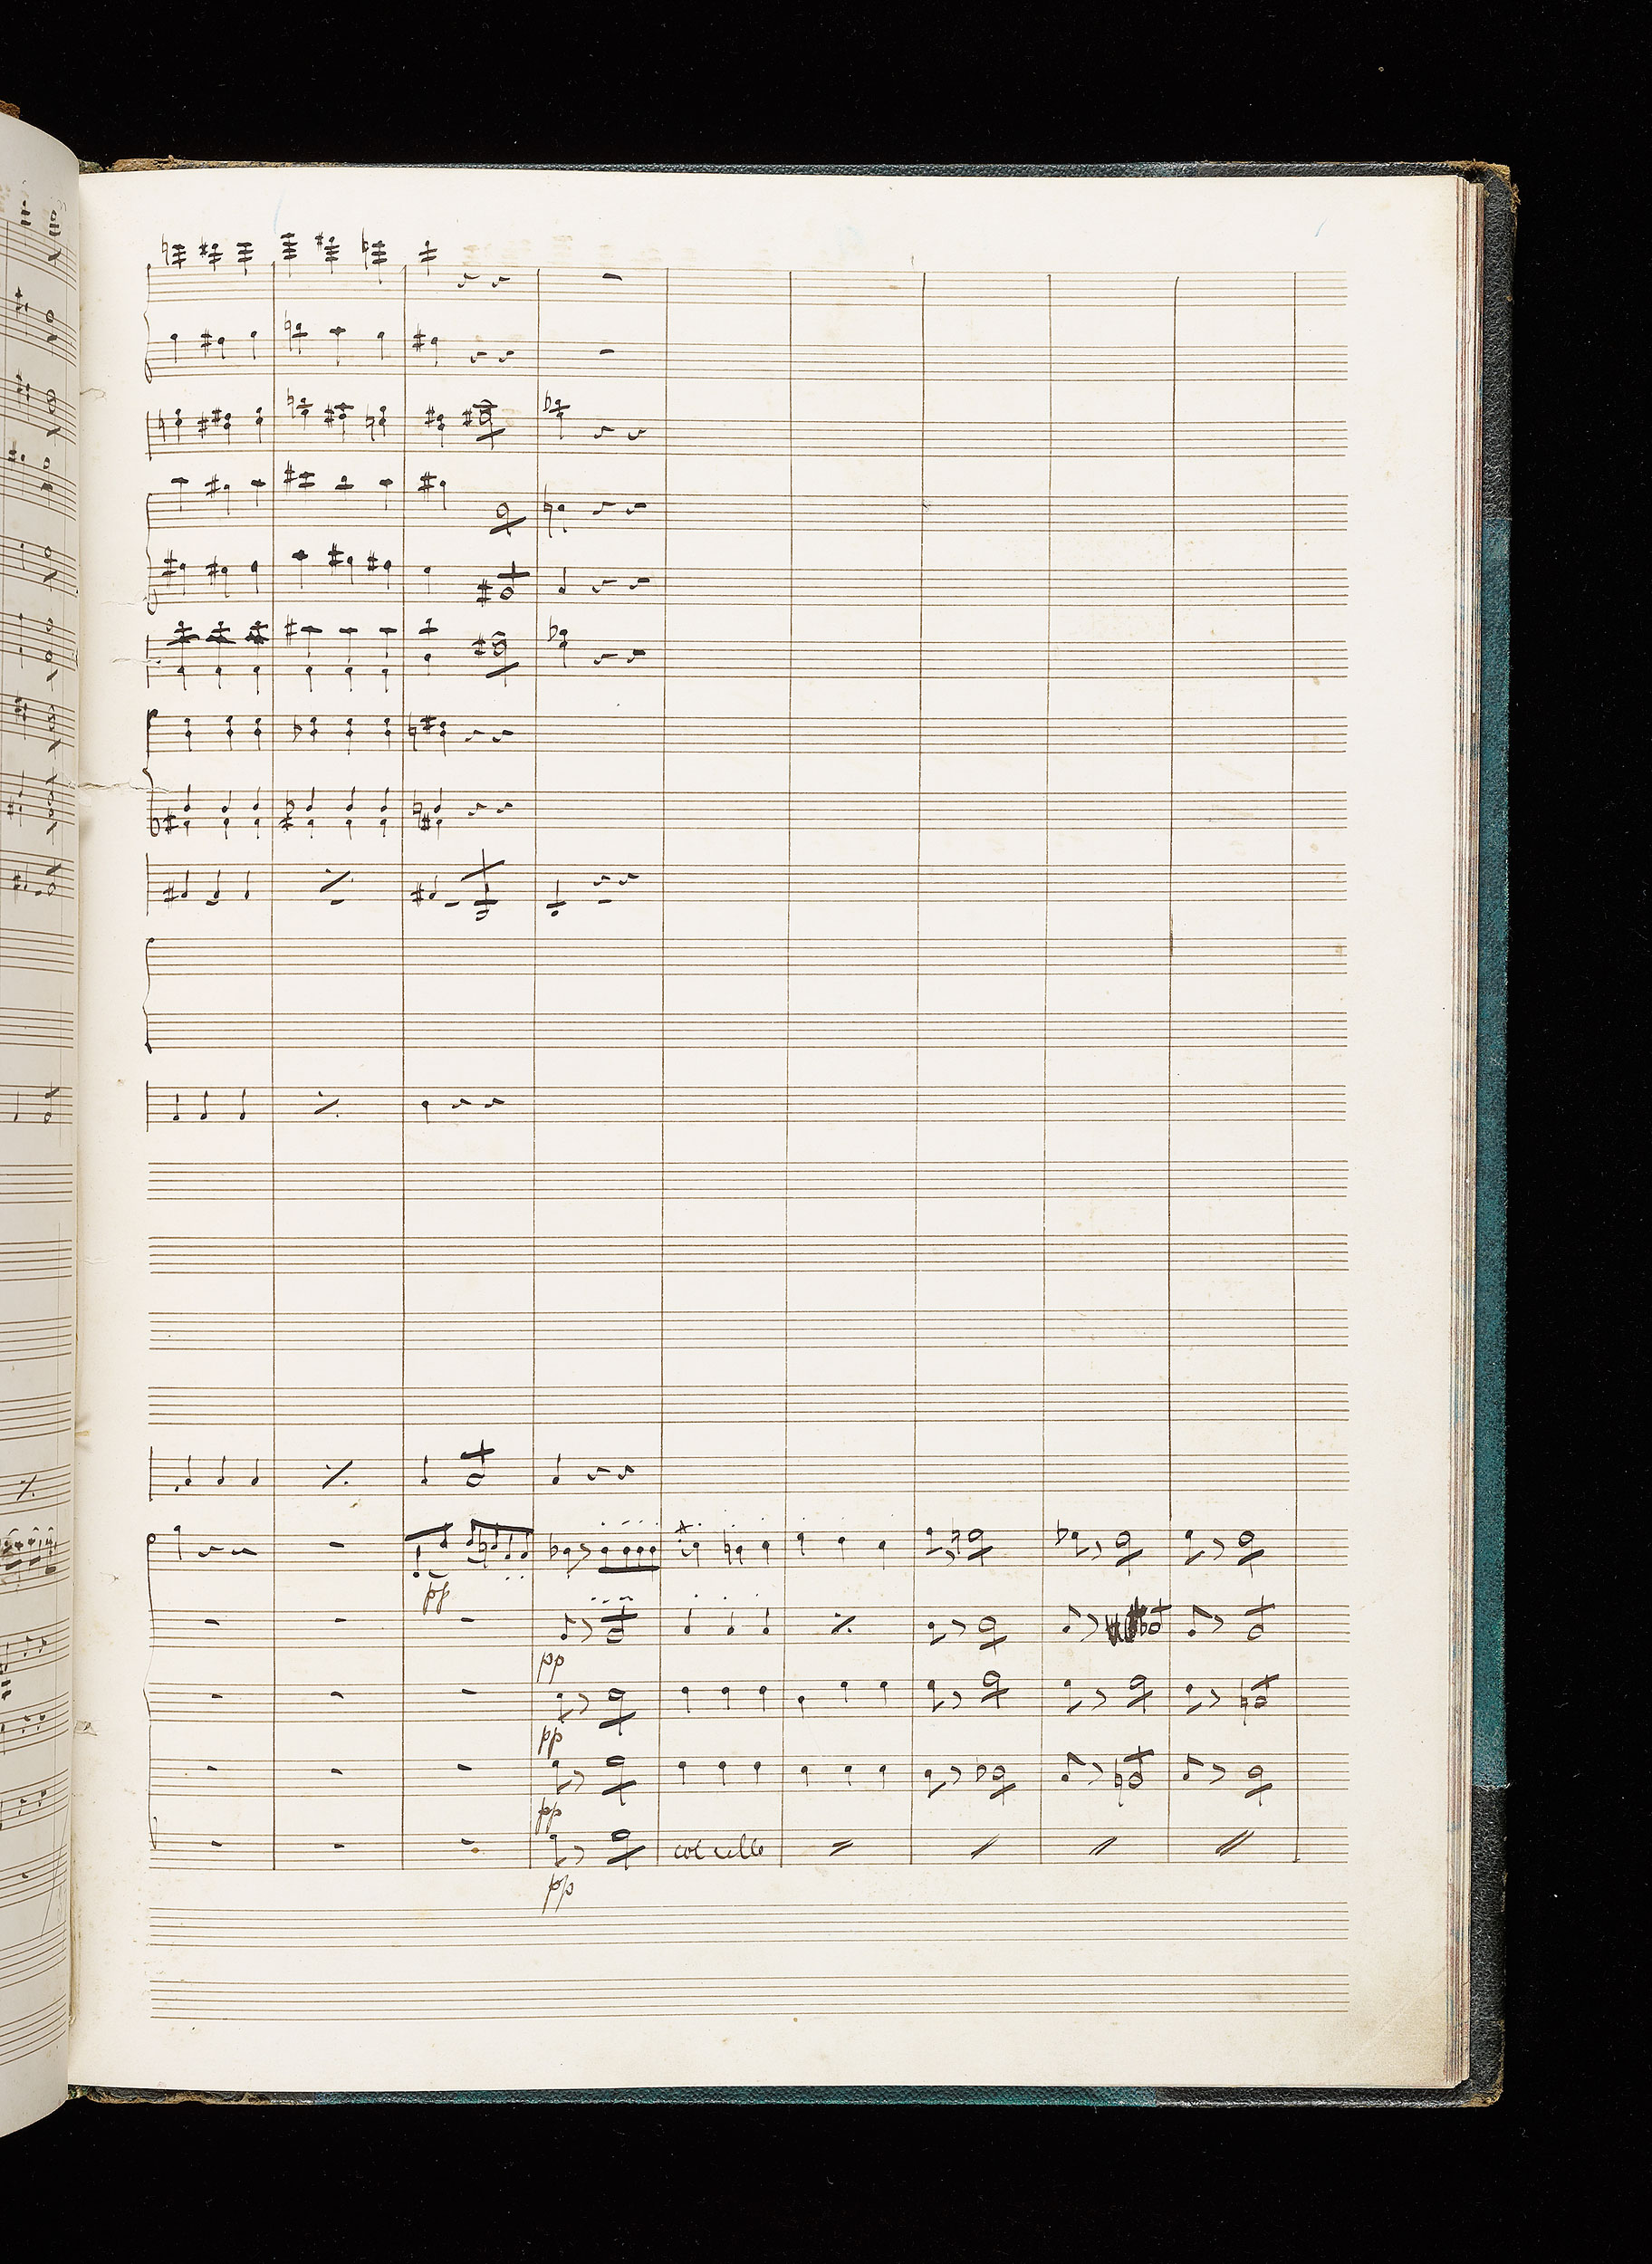 pp
pp
pp
pp
col cello
pp